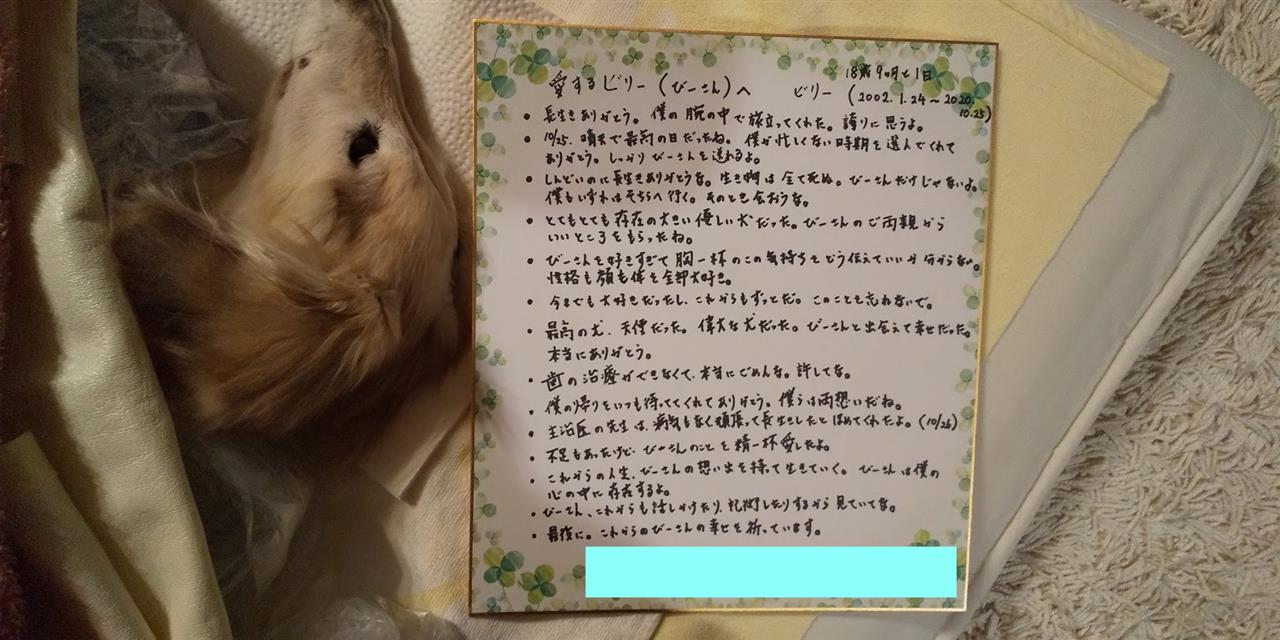 18歳9ヶ月と1日
愛するビリー(びーさん)へ ビリー(2002.1.24〜2020.
10.25)
• 長生きありがとう。僕の腕の中で旅立ってくれた。誇りに思うよ。
• 10/25.晴天で最高の日だったね。僕が忙しくない時期を選んでくれて
ありがとう。しっかりびーさんを送れるよ。
• しんどいのに長生きありがとうな。生き物は全て死ぬ。びーさんだけじゃないよ。
僕もいずれはそちらへ行く。そのとき会おうな。
• とてもとても存在の大きい優しい犬だった。びーさんのご両親から
いいところをもらったね。
• びーさんを好きすぎて胸一杯のこの気持ちをどう伝えていいか分からない。
性格も顔も体も全部大好き。
• 今までも大好きだったし、これからもずっとだ。このことを忘れないで。
• 最高の犬、天使だった。偉大な犬だった。びーさんと出会えて幸せだった。
本当にありがとう。
• 歯の治療ができなくて、本当にごめんな。許してな。
• 僕の帰りをいつも待っててくれてありがとう。僕らは両想いだね。
• 主治医の先生は、病気もなく頑張って長生きしたとほめてくれたよ。(10/26)
• 不足もあったけど、びーさんのことを精一杯愛したよ。
• これからの人生、びーさんの想い出を持って生きていく。びーさんは僕の
心の中に存在するよ。
• びーさん、これからも話しかけたり、記術したりするから見ていてな。
• 最後に。これからのびーさんの幸せを祈っています。